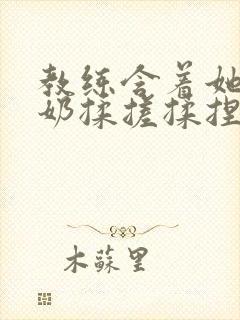 教练含着她
奶揉搓揉捏
木蘇里